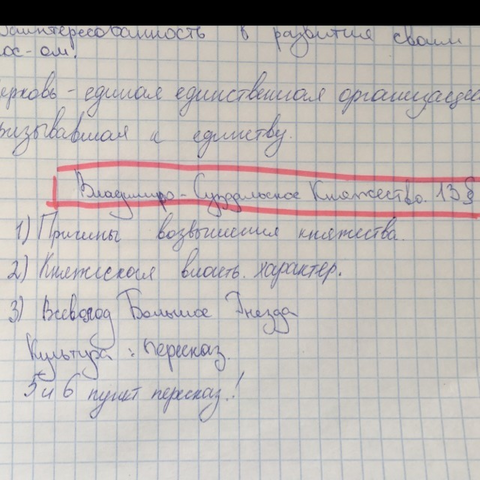 заинтересованность в развития своим
гос-ом.
Церковь - единая единственная организация
призывавшая к единству.
Владимиро-Суздальское Княжество. 13§
1) Причины возвышения княжества.
2) Княжеская власть. характер.
3) Всеволод Большое Гнездо
Культура: пересказ.
5 и 6 пункт пересказ!